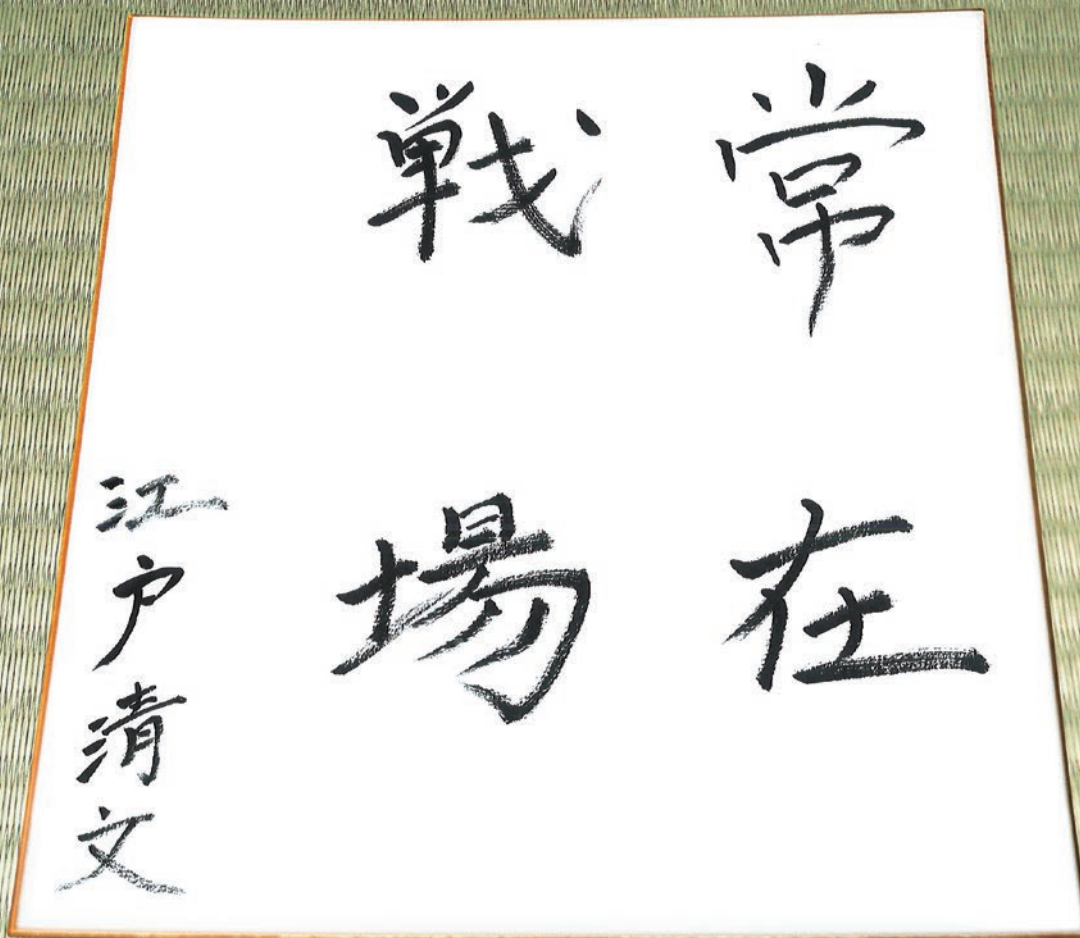 常在
戦場
江戸清文